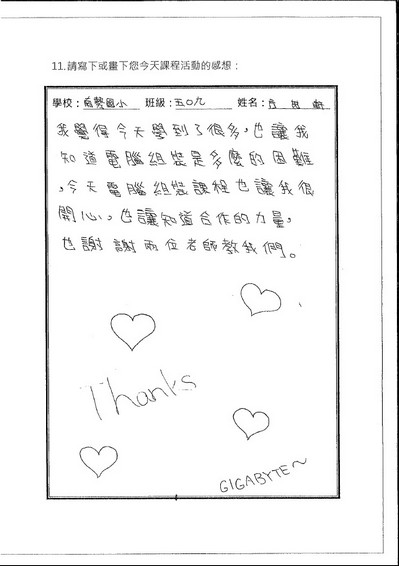 11.請寫下或畫下您今天課程活動的感想：
學校：南勢國小 班級：五0九 姓名：
我覺得今天學到了很多，也讓我
知道電腦組裝是多麼的困難
，今天電腦組裝課程也讓我很
開心，也讓知道合作的力量，
也謝謝兩位老師教我們。
Thanks
GIGABYTE～